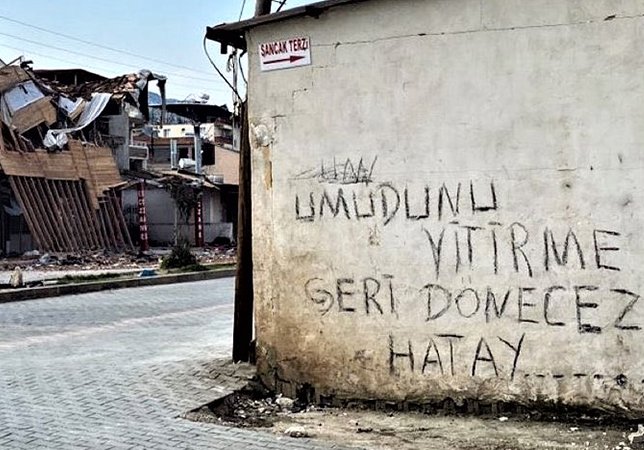 SANCAK TERZİ
UMUDUNU
YİTİRME
GERİ DÖNECEZ
HATAY......